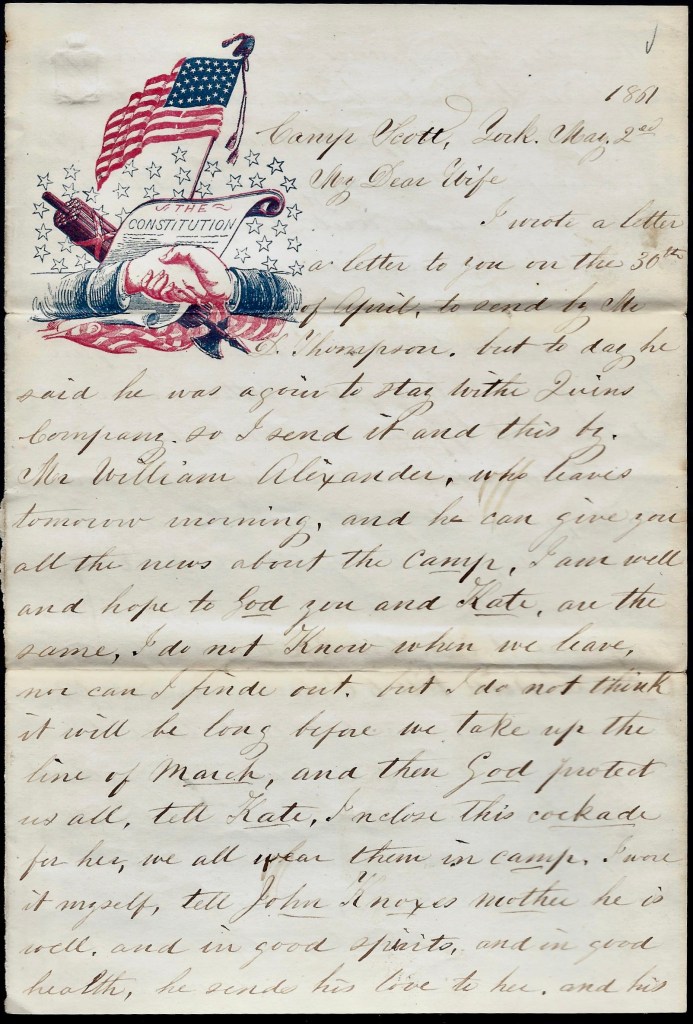 1861
Camp Scott, York. May, 2nd
My Dear Wife
THE
CONSTITUTION
I wrote a letter
a letter to you on the 30th
of April, to send by Mr
D. Thompson. but to day he
said he was agoin to stay withe
Company. so I send it and this by.
Mr William Alexander, who leaves
tomorow morning, and he can give you
all the news about the camp, I am well
and hope to God you and Kate, are the
same, I do not Know when we leave,
nor can I finde out. but I do not think
it will be long before we take up the
line of March, and then God protect
us all, tell Kate, I nclose this cockade
for her, we all wear them in camp. I wore
it myself, tell John Knoxes mother he is
well. and in good spirits, and in good
health, he sends his love to her. and his